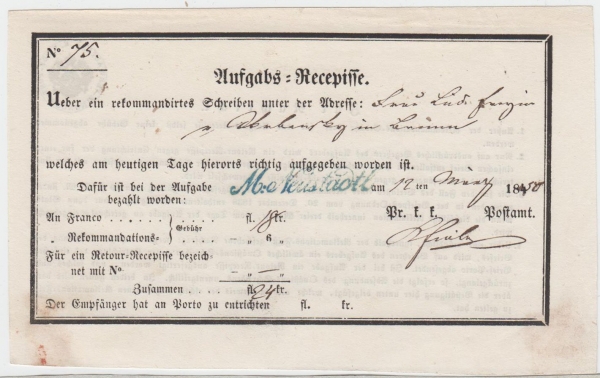 No 75.
Aufgabs-Recepisse.
Ueber ein rekommandirtes Schreiben unter der Adresse: Frau
in Brünn
welches am heutigen Tage hierorts richtig aufgegeben worden ist.
Dafür ist bei der Aufgabe M. Neustadtl am 12 ten März 1850
bezahlt worden: Pr. k. k. Postamt.
An Franco . . . . . . Gebühr fl. 18 kr.
„ Rekommandations- – „ 6 „
Für ein Retour-Recepisse bezeich-
net mit No – „ — „
Zusammen . . . . fl. 24 kr.
Der Empfänger hat an Porto zu entrichten fl. kr.